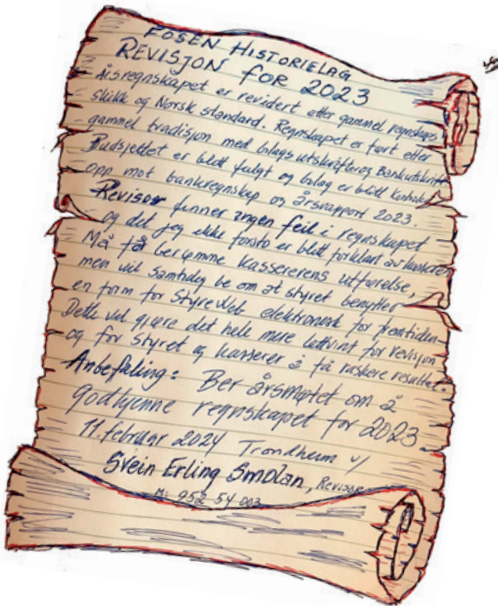 FOSEN HISTORIELAG
REVISJON FOR 2023
Årsregnskapet er revidert etter gammel regnskaps
skikk og Norsk standard. Regnskapet er ført etter
gammel tradisjon med bilagsutskrifter og Bankutskrift
Budsjettet er blitt fulgt og bilag er blitt kontroll
opp mot bankregnskap og årsrapport 2023.
Revisor finner ingen feil i regnskapet
og det jeg ikke forsto er blitt forklart av kasserer
Må få berømme kassererens utførelse,
men vil samtidig be om at styret benytter
en form for StyreWeb elektronisk for fremtiden
Dette vil gjøre det hele mere lettvint for revisjon
og for styret og kasserer å få raskere resultat.
Anbefaling: Ber årsmøtet om å
godkjenne regnskapet for 2023
11. februar 2024 Trondheim v/
Svein Erling Smolan, Revisor
952 54 003